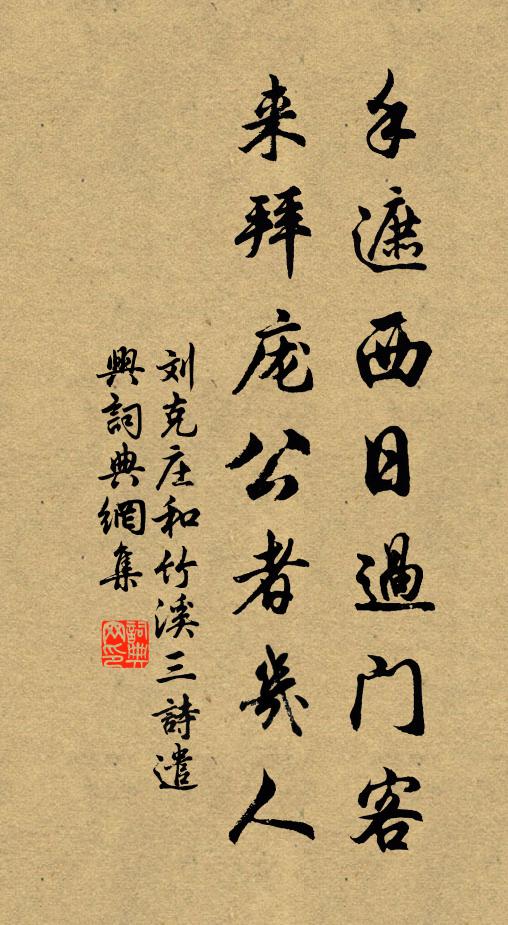 手遮西日過门客
来拜庞公者幾人
刘克庄和竹溪三詩遣
興詞典網集
詞典
网印